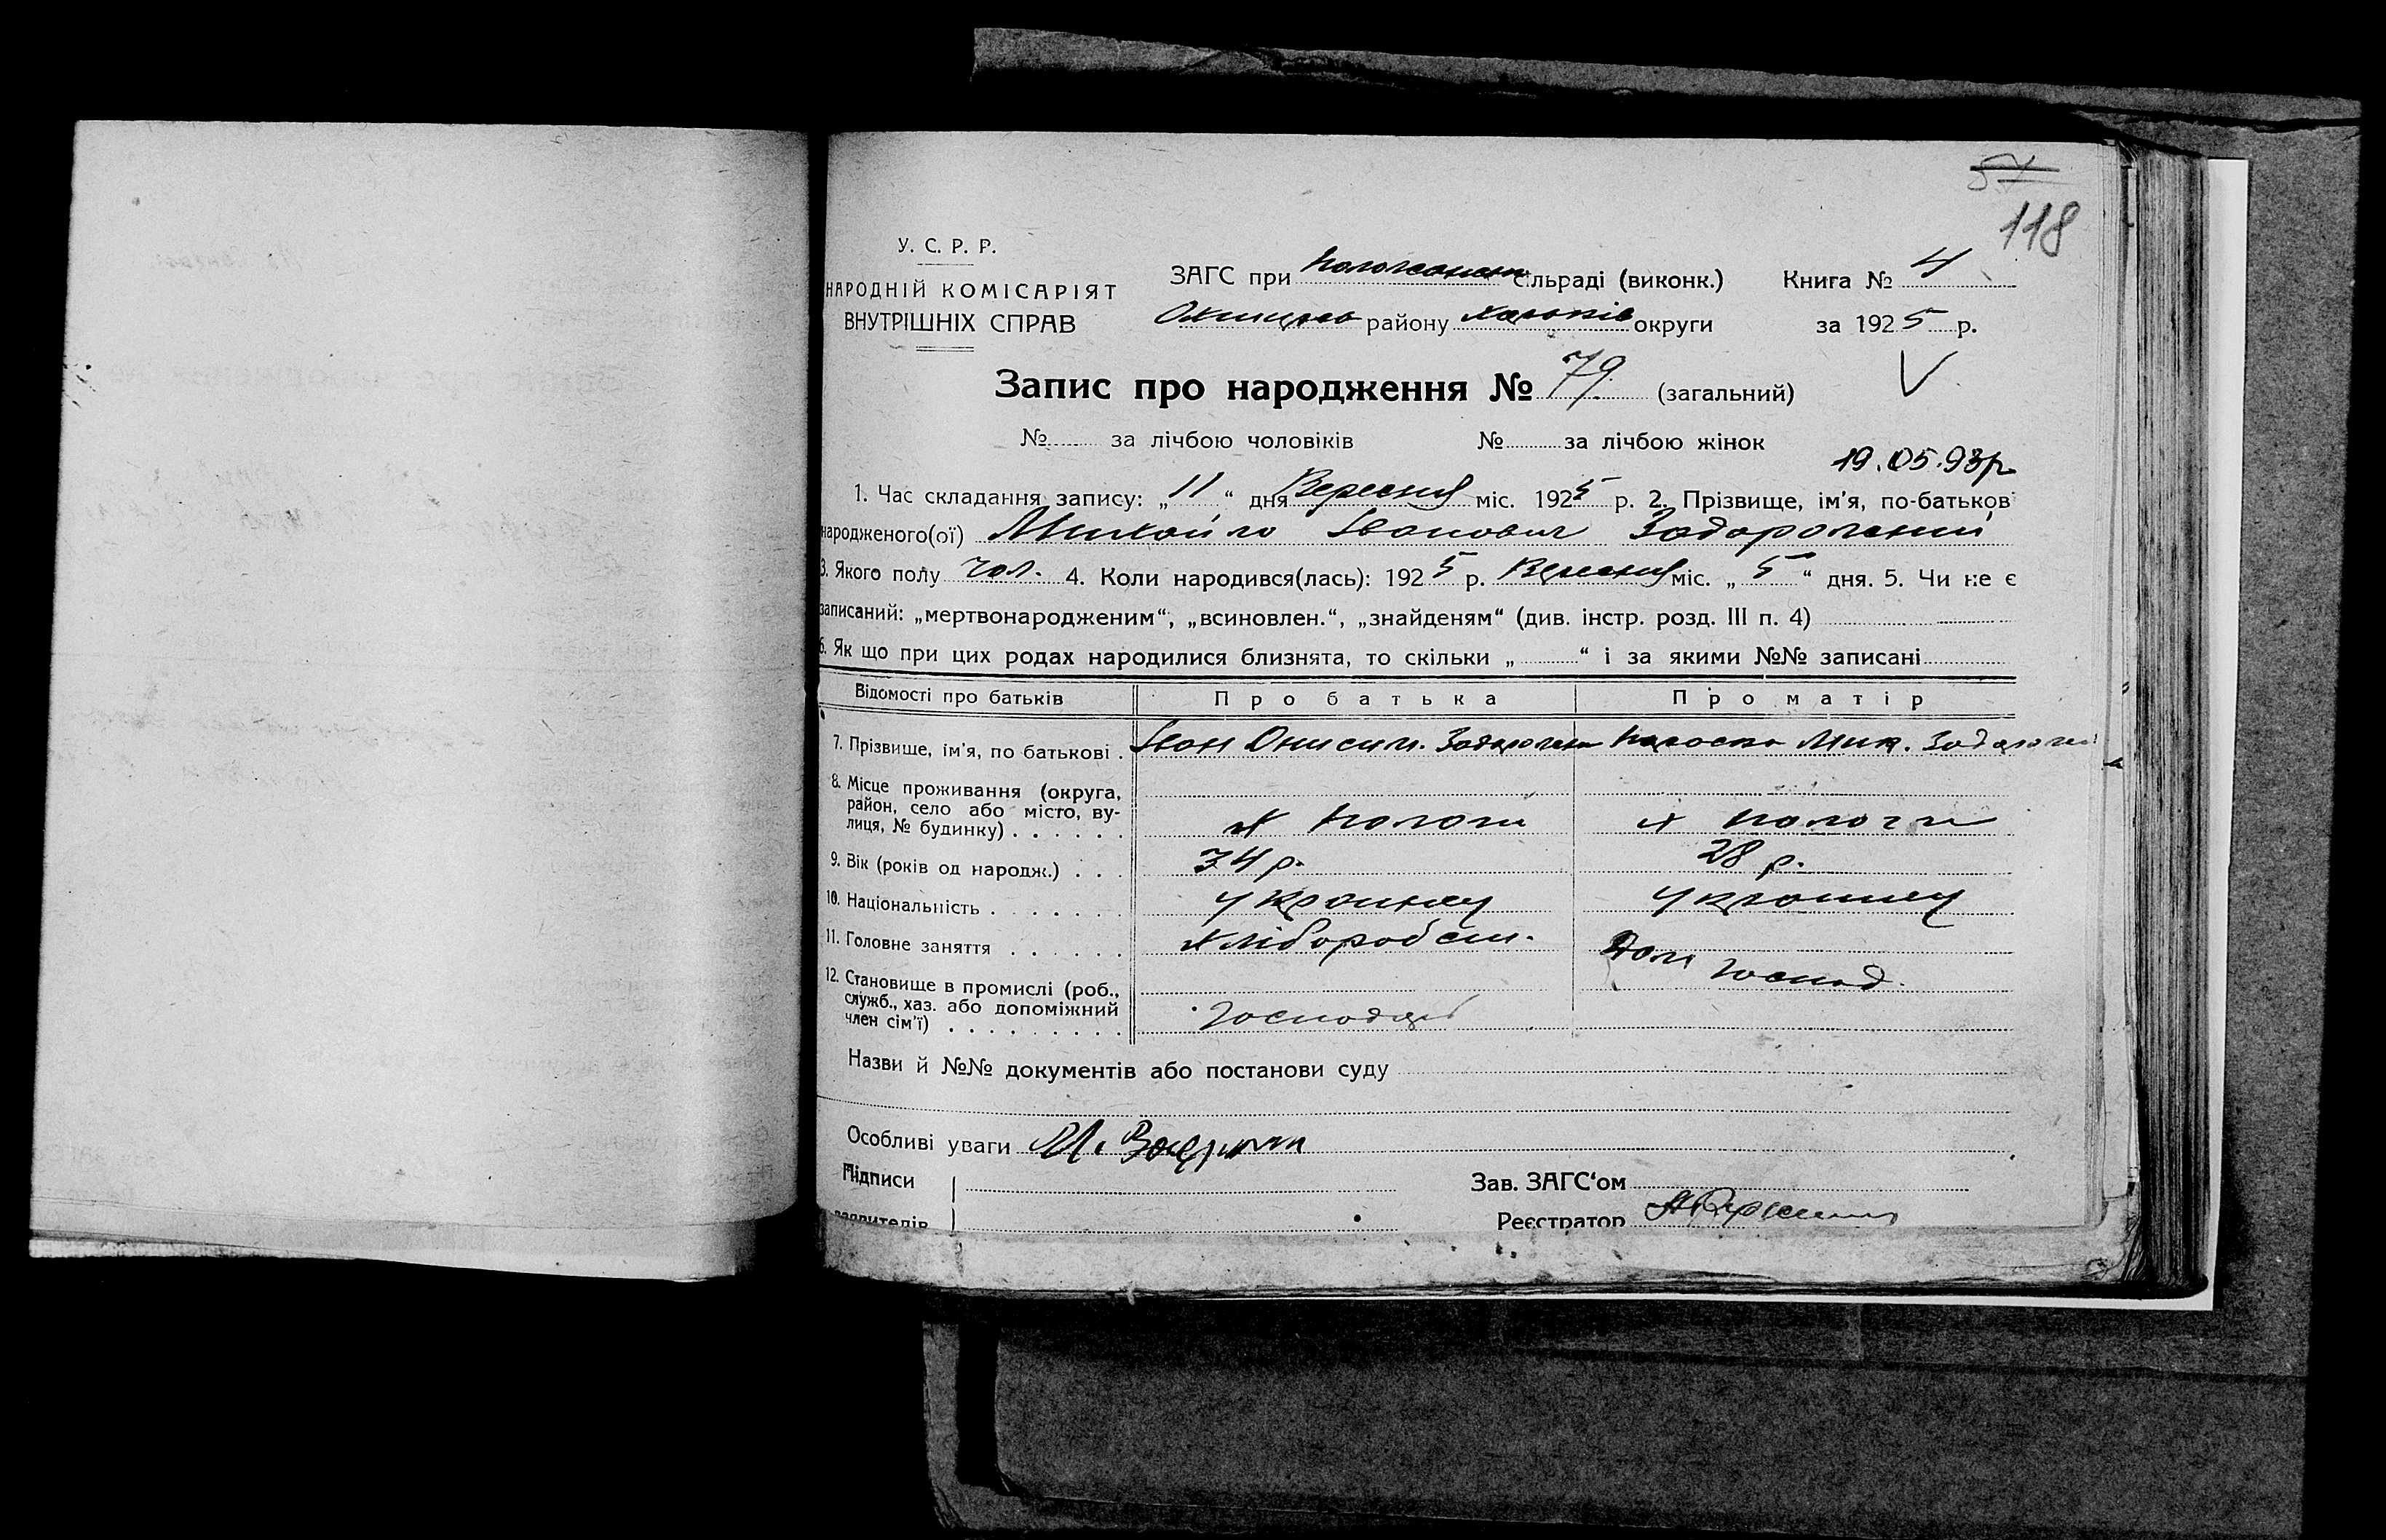 57
118
У. С. Р. Р.
НАРОДНІЙ КОМІСАРІЯТ
ВНУТРІШНІХ СПРАВ
ЗАГС при сільраді (виконк.) Книга № 4
району Харьків округи за 1925 р.
Запис про народження № 79. (загальний)
№ за лічбою чоловіків № за лічбою жінок
19.05.93р
1. Час складання запису: „11“ дня Вересня міс. 1925 р. 2. Прізвище, ім'я, по-батьков
народженого(ої) Михайло Іванович Задорожний
3. Якого полу чол. 4. Коли народився(лась): 1925 р. Вересня міс. „5“ дня. 5. Чи не є
записаний: „мертвонародженим“, „всиновлен.“, „знайденям“ (див. інстр. розд. III п. 4)
6. Як що при цих родах народилися близнята, то скільки „ “ і за якими №№ записані
Відомості про батьків Про батька Про матір
7. Прізвище, ім'я, по батькові . Іван Онисим. Задорожн Параска Мик. Задорожн
8. Місце проживання (округа,
район, село або місто, ву-
лиця, № будинку) . . . . . . х Пологи х Пологи
9. Вік (років од народж.) . . . 34 р. 28 р.
10. Національність . . . . . . . українец українец
11. Головне заняття . . . . . . хлібороб Дом
господ.
12. Становище в промислі (роб.,
служб., хаз. або допоміжний
член сім'ї) . . . . . . . . . Господар
Назви й №№ документів або постанови суду
Особливі уваги
Підписи Зав. ЗАГС'ом
заявителів Реєстратор